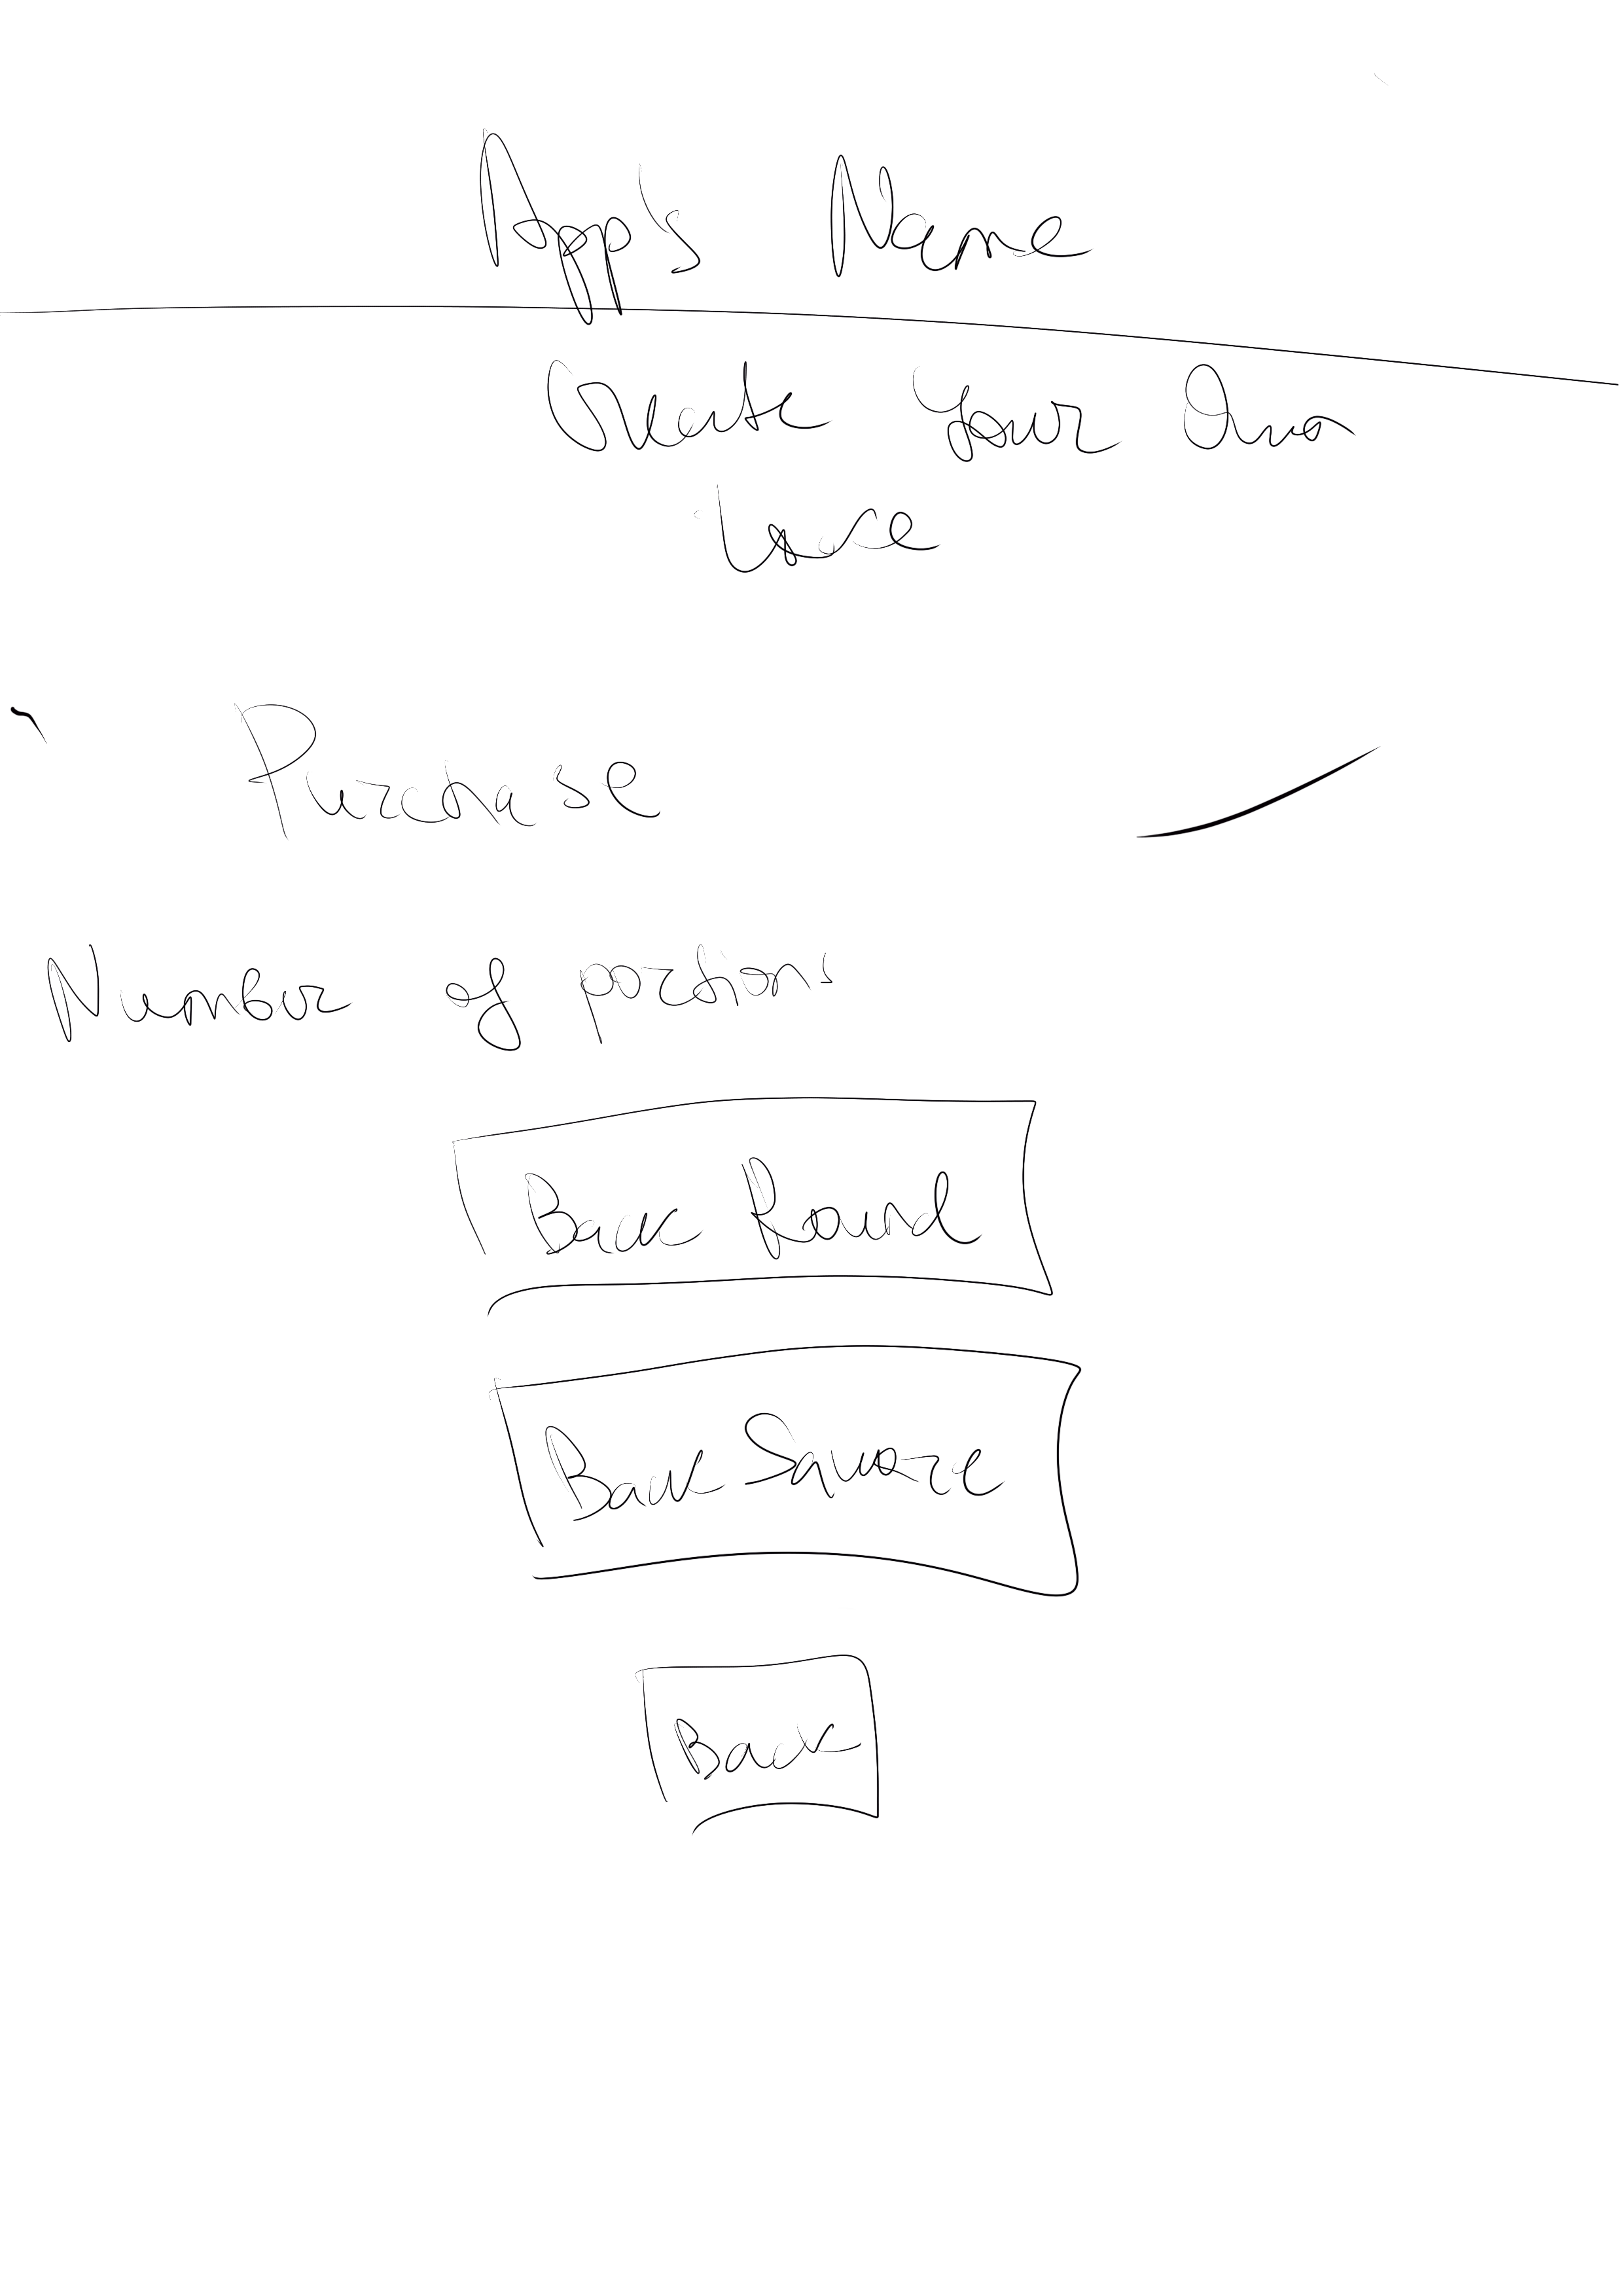 App's Name
Create Your Own
Purchase
Number of portions
Back Round
Back Square
Back